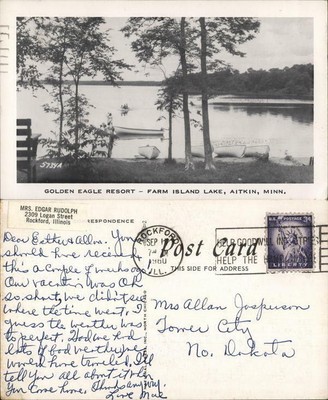 5734
GOLDEN EAGLE RESORT - FARM ISLAND LAKE, AITKIN, MINN.
MRS. EDGAR RUDOLPH
2309 Logan Street
Rockford, Illinois
RESPONDENCE
Post Card
THIS SIDE FOR ADDRESS
ROCKFORD
SEP 1
1960
ILL.
HELP GOODWILL
HELP THE
LIBERTY
Dear Esther & Allan. You
should have received
this a couple of weeks ago
Our vacation was oh
so short, we didn't see
where the time went. I
guess the weather was
to perfect. Had we had
lots of bad weather, it
would have traveled. I'll
tell you all about it when
you come home.
Love Mae
Mrs Allan Jasperson
Tower City
No. Dakota